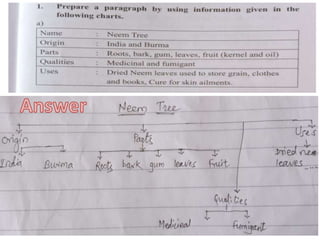 1. Prepare a paragraph by using information given in the
following charts.
a)
Name : Neem Tree
Origin : India and Burma
Parts : Roots, bark, gum, leaves, fruit (kernel and oil)
Qualities : Medicinal and fumigant
Uses : Dried Neem leaves used to store grain, clothes
and books, Cure for skin ailments.
Answer Neem Tree
Origin Parts Uses
India Burma Roots bark gum leaves Fruit Dried
leaves
Qualities
Medicinal Fumigant